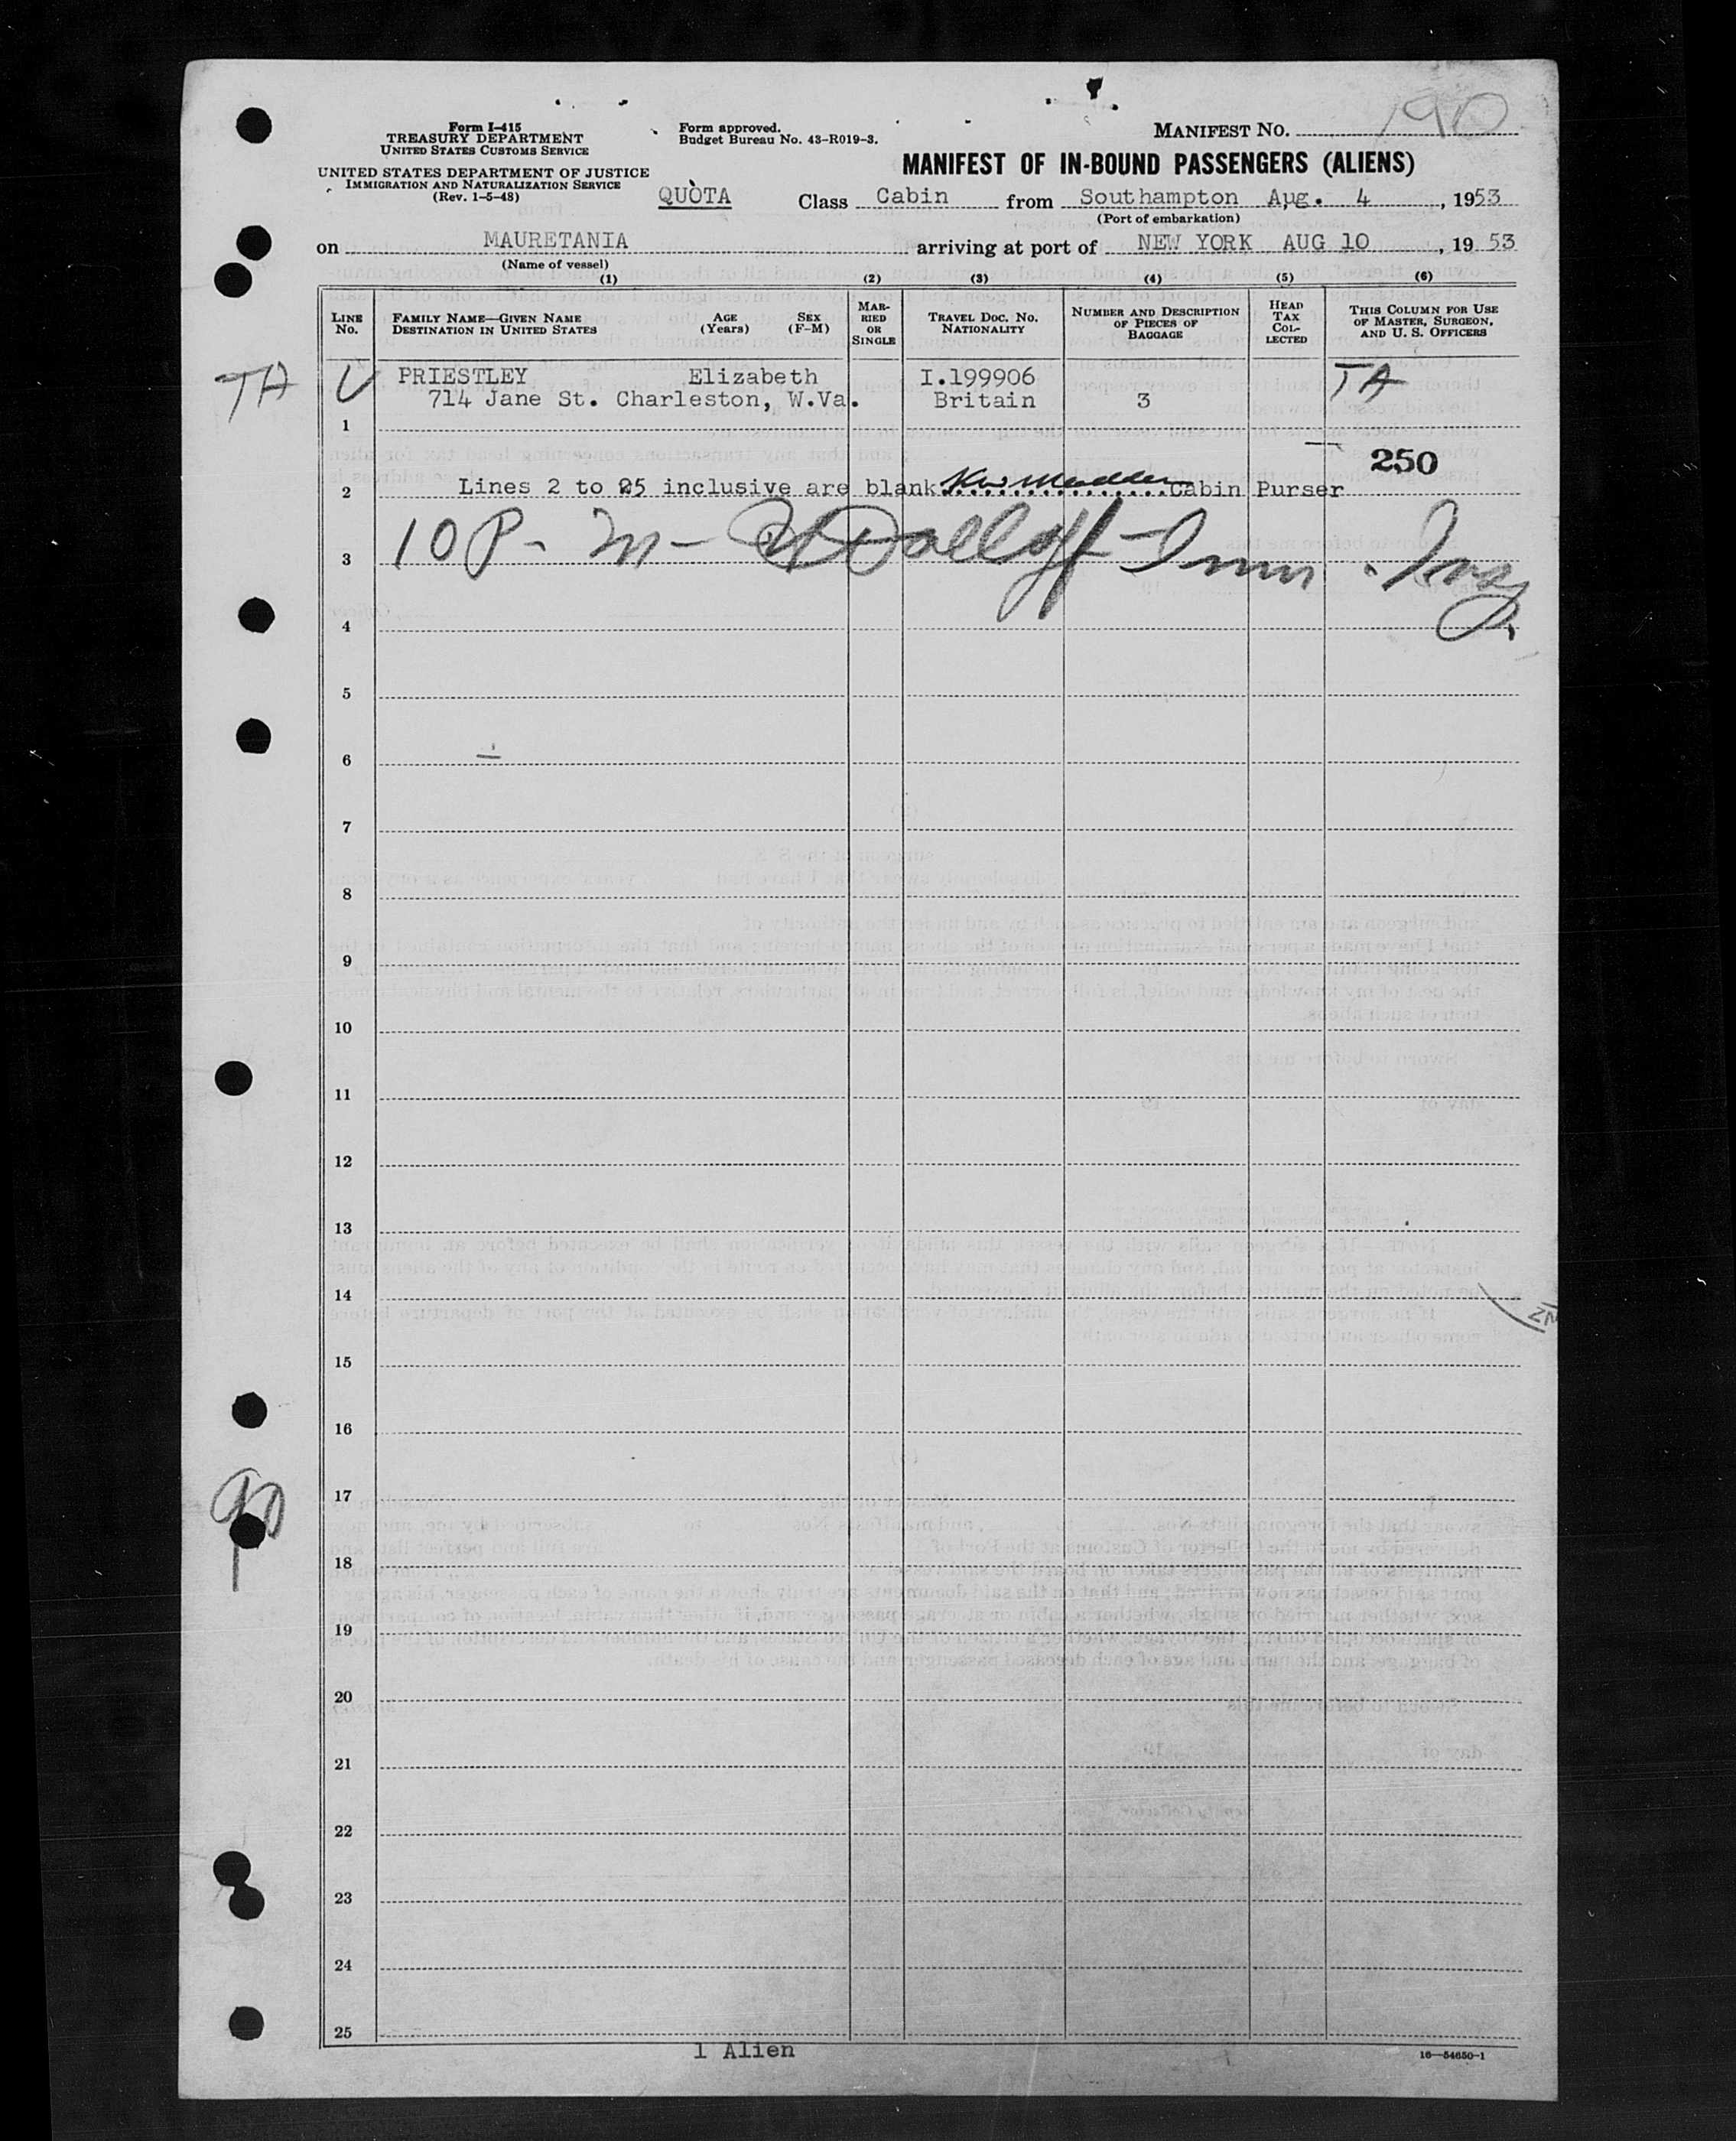 Form I-415
TREASURY DEPARTMENT
UNITED STATES CUSTOMS SERVICE
UNITED STATES DEPARTMENT OF JUSTICE
IMMIGRATION AND NATURALIZATION SERVICE
(Rev. 1-5-48)
Form approved.
Budget Bureau No. 43-R019-3.
MANIFEST NO. 190
MANIFEST OF IN-BOUND PASSENGERS (ALIENS)
QUOTA Class Cabin from Southampton Aug. 4, 1953
(Port of embarkation)
on MAURETANIA arriving at port of NEW YORK AUG 10, 19 53
(Name of vessel)
(1) (2) (3) (4) (5) (6)
LINE No.
FAMILY NAME—GIVEN NAME
DESTINATION IN UNITED STATES
AGE (Years)
SEX (F-M)
MARRIED OR SINGLE
TRAVEL DOC. NO. NATIONALITY
NUMBER AND DESCRIPTION OF PIECES OF BAGGAGE
HEAD TAX COLLECTED
THIS COLUMN FOR USE OF MASTER, SURGEON, AND U. S. OFFICERS
TA PRIESTLEY Elizabeth I.199906 TA
714 Jane St. Charleston, W.Va. Britain 3
1
250
2 Lines 2 to 25 inclusive are blank Cabin Purser
3 10 P- M- Imm. Insp.
4
5
6
7
8
9
10
11
12
13
14
15
16
17
18
19
20
21
22
23
24
25
1 Alien
16—54650-1